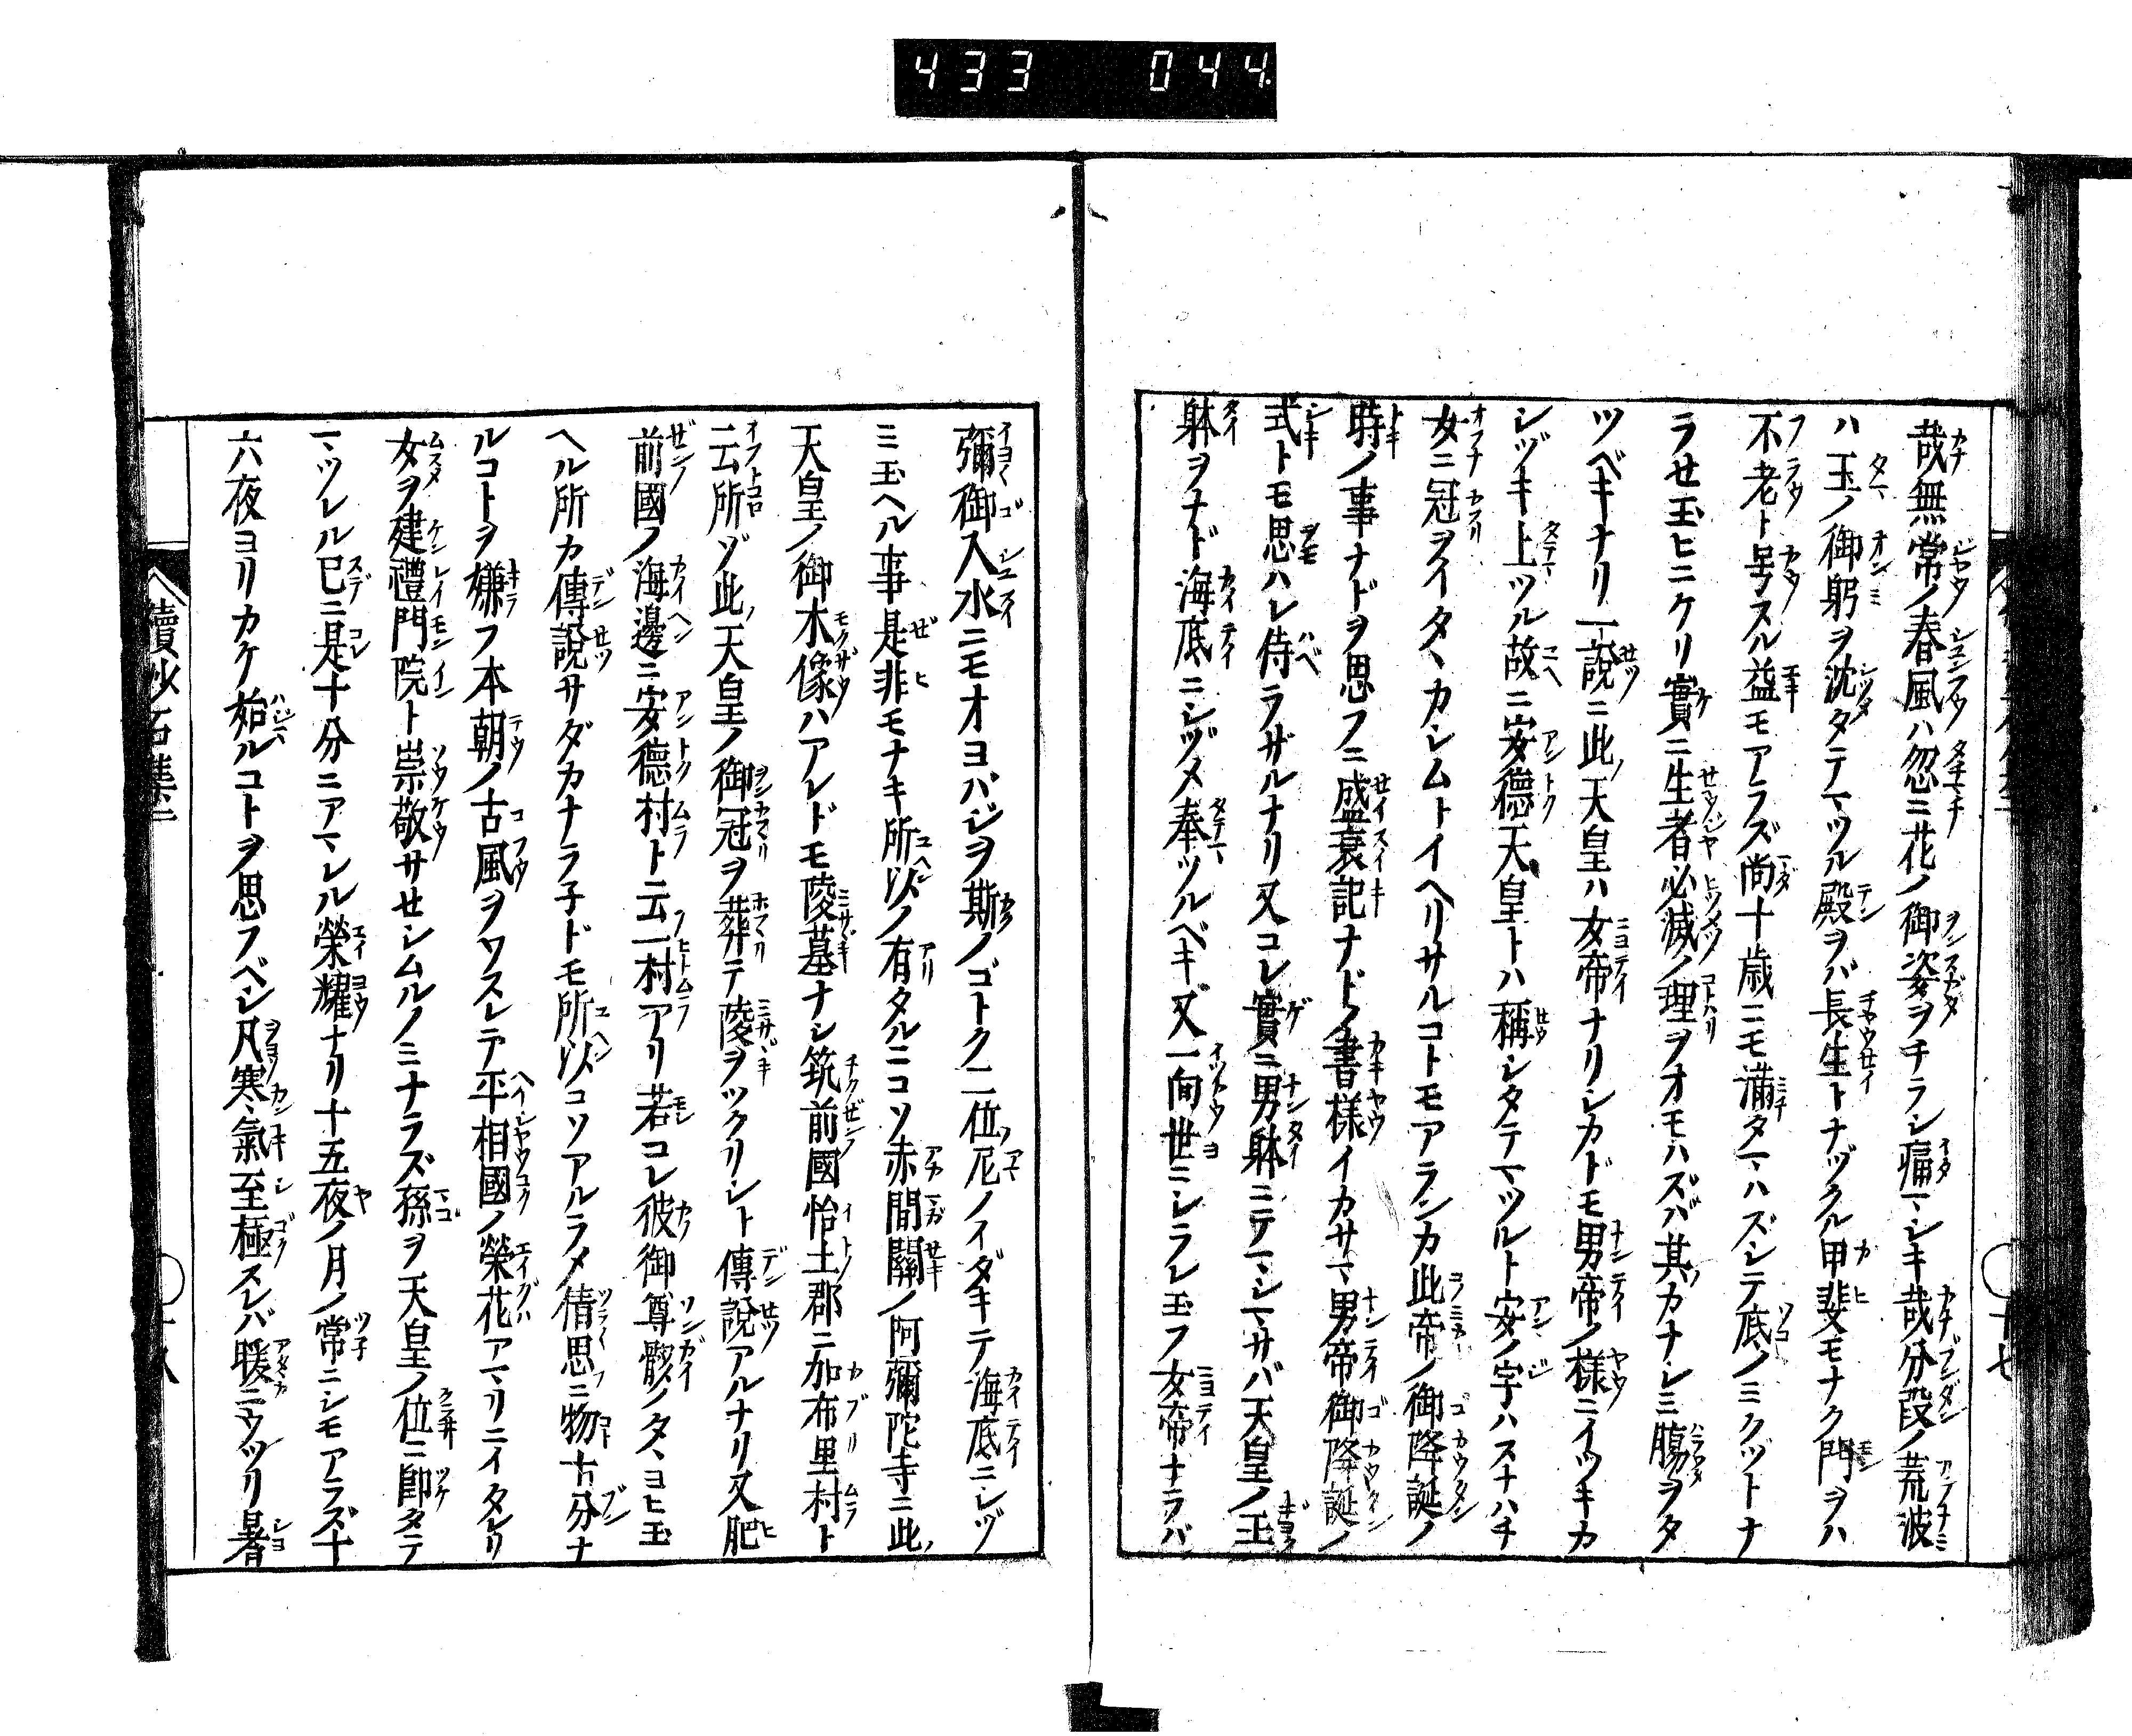 433 044
哉無常ノ春風ハ忽ニ花ノ御姿ヲチラシ痛マシキ哉分段ノ荒波
ハ玉ノ御躬ヲ沈タテマツル殿ヲバ長生トナヅクル甲斐モナク門ヲハ
不老ト号スル益モアラズ尚十歳ニモ満タマハズシテ底ノミクヅトナ
ラセ玉ヒニケリ實ニ生者必滅ノ理ヲオモハズバ其カナシミ腸ヲタ
ツベキナリ一説ニ此ノ天皇ハ女帝ナリシカドモ男帝ノ様ニイツキカ
シヅキ上ツル故ニ安德天皇トハ稱シタテマツルト安ノ字ハスナハチ
女ニ冠ヲイタヾカシムトイヘリサルコトモアランカ此帝ノ御降誕ノ
時ノ事ナドヲ思フニ盛衰記ナドノ書様イカサマ男帝御降誕ノ
式トモ思ハレ侍ラザルナリ又コレ實ニ男躰ニテマシマサバ天皇ノ玉
躰ヲナド海底ニシヅメ奉ツルベキ又一向世ニシラレ玉フ女帝ナラバ
彌御入水ニモオヨバジヲ斯ノゴトク二位ノ尼ノイダキテ海底ニシヅ
ミ玉ヘル事是非モナキ所以ノ有タルニコソ赤間關ノ阿彌陀寺ニ此ノ
天皇ノ御木像ハアレドモ陵墓ナシ筑前國怡土郡ニ加布里村ト
云所ゾ此ノ天皇ノ御冠ヲ葬テ陵ヲツクリシト傳說アルナリ又肥
前國ノ海邊ニ安德村ト云一村アリ若コレ彼御尊骸ノタヾヨヒ玉
ヘル所カ傳說サダカナラ子ドモ所以コソアルラメ倩思ニ物十分ナ
ルコトヲ嫌フ本朝ノ古風ヲワスレテ平相國ノ榮花アマリニイタレリ
女ヲ建禮門院ト崇敬サセシムルノミナラズ孫ヲ天皇ノ位ニ卽タテ
マツレル已ニ是十分ニアマレル榮耀ナリ十五夜ノ月ノ常ニシモアラズ十
六夜ヨリカケ始ルコトヲ思フベシ凡寒氣至極スレバ暖ニウツリ暑
續沙石集一